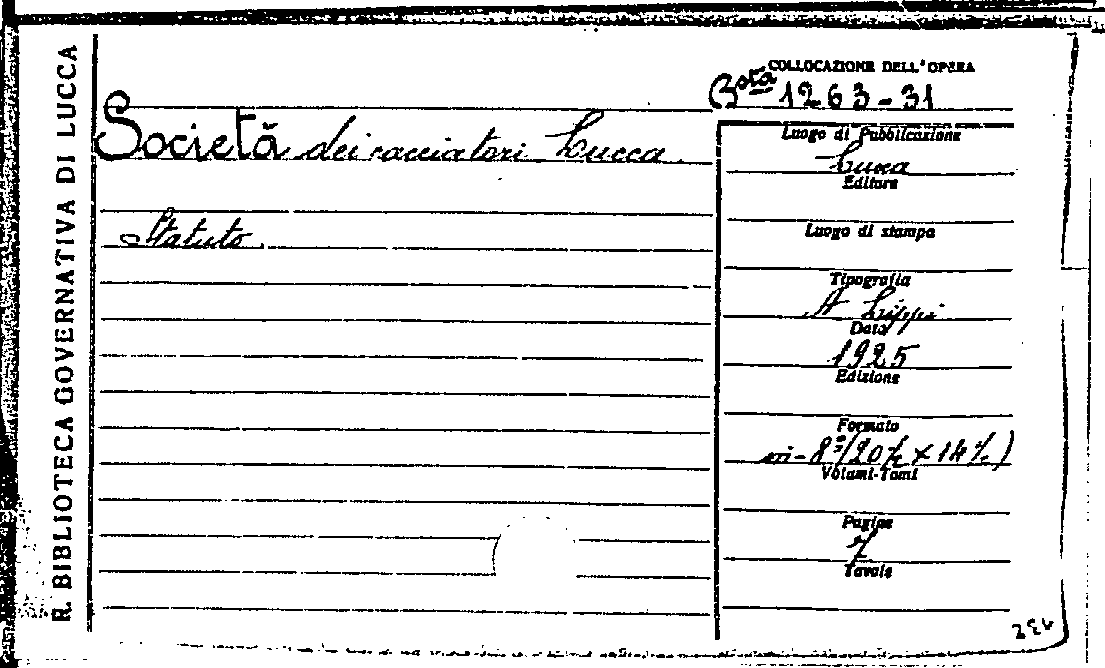 R. BIBLIOTECA GOVERNATIVA DI LUCCA
COLLOCAZIONE DELL'OPERA
Bsta 1263-31
Società dei cacciatori Lucca
Statuto.
Luogo di Pubblicazione
Lucca
Editore
Luogo di stampa
Tipografia
A Lippi
Data
1925
Edizione
Formato
in-8°(20½ x 14½)
Volumi-Tomi
Pagine
7
Tavole